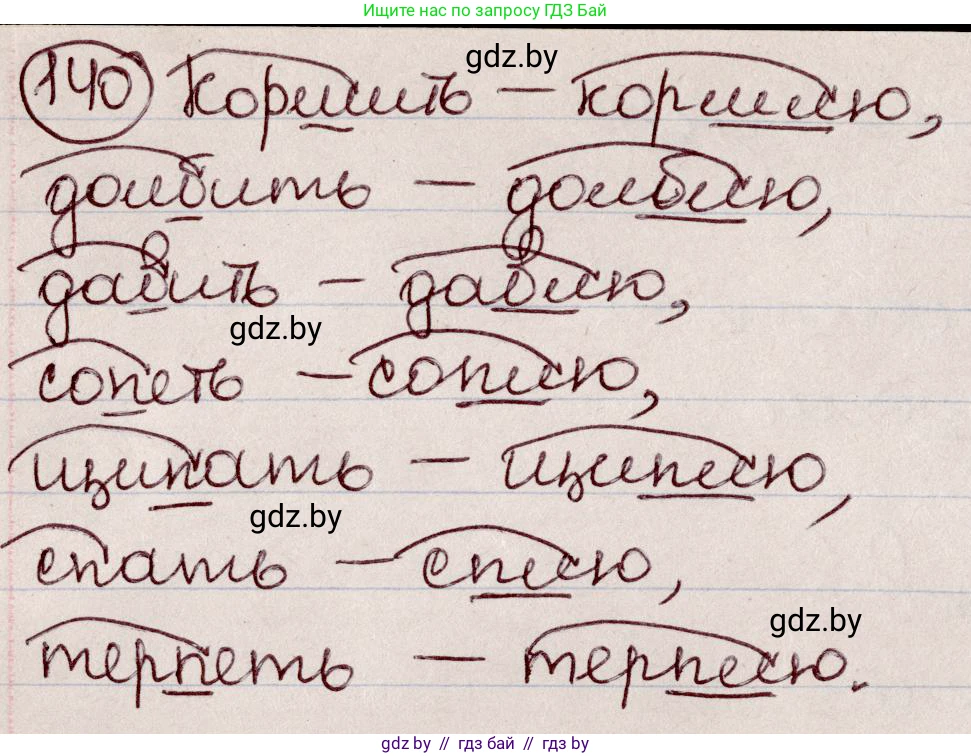 Ищите нас по запросу ГДЗ Бай
gdz.by
140 Кормить – кормлю,
долбить – долблю,
давить – давлю,
gdz.by
сопеть – соплю,
щипать – щиплю,
gdz.by
спать – сплю,
gdz.by
терпеть – терплю.
gdz.by // гдз бай // gdz by